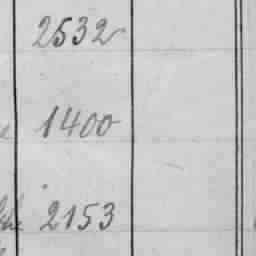 2532
1400
2153